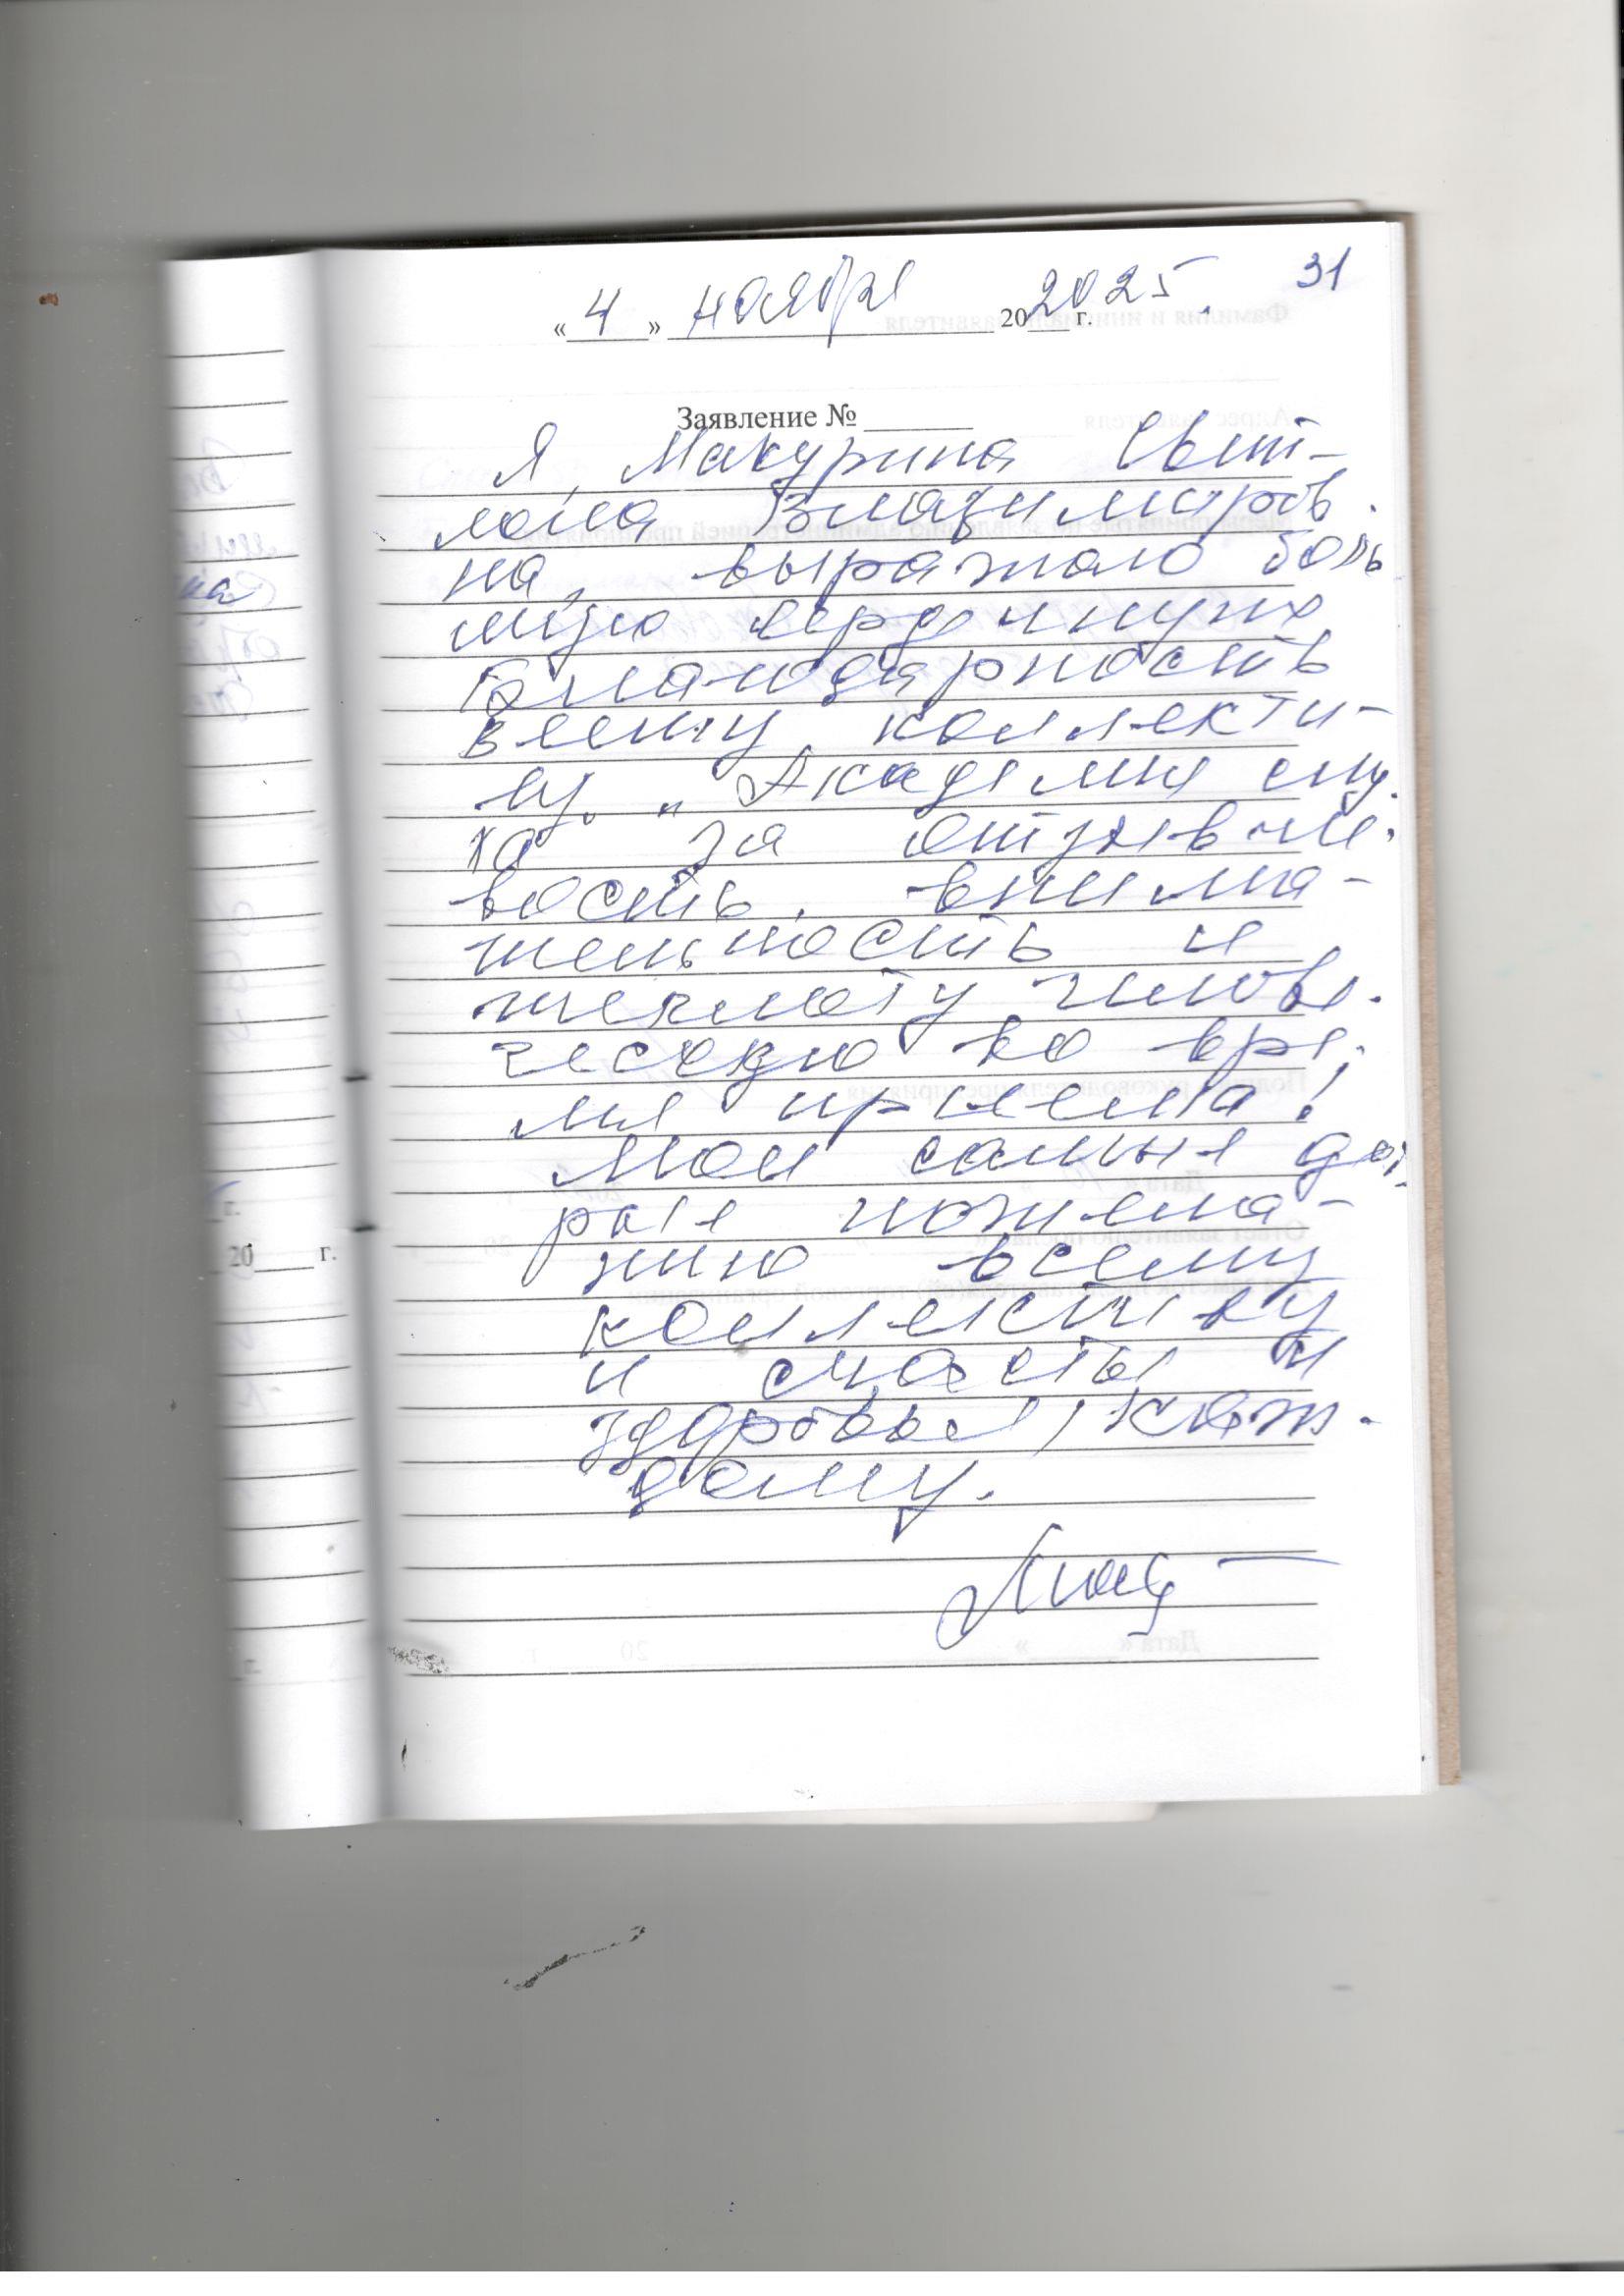 31
« 4 » ноября 20 2025 г.
Заявление № ______
Я, Макурина Свет-
лана Владимиров-
на, выражаю боль
шую сердечную
благодарность
всему коллекти-
ву. „Академия слу-
ха за отзывчи-
вость, внима-
тельность и
теплоту челове-
ческую во вре-
мя приема!
Мои самые доб-
рые пожела-
нию всему
коллективу
и счастья и
здоровья, каж-
дому.
20____ г.